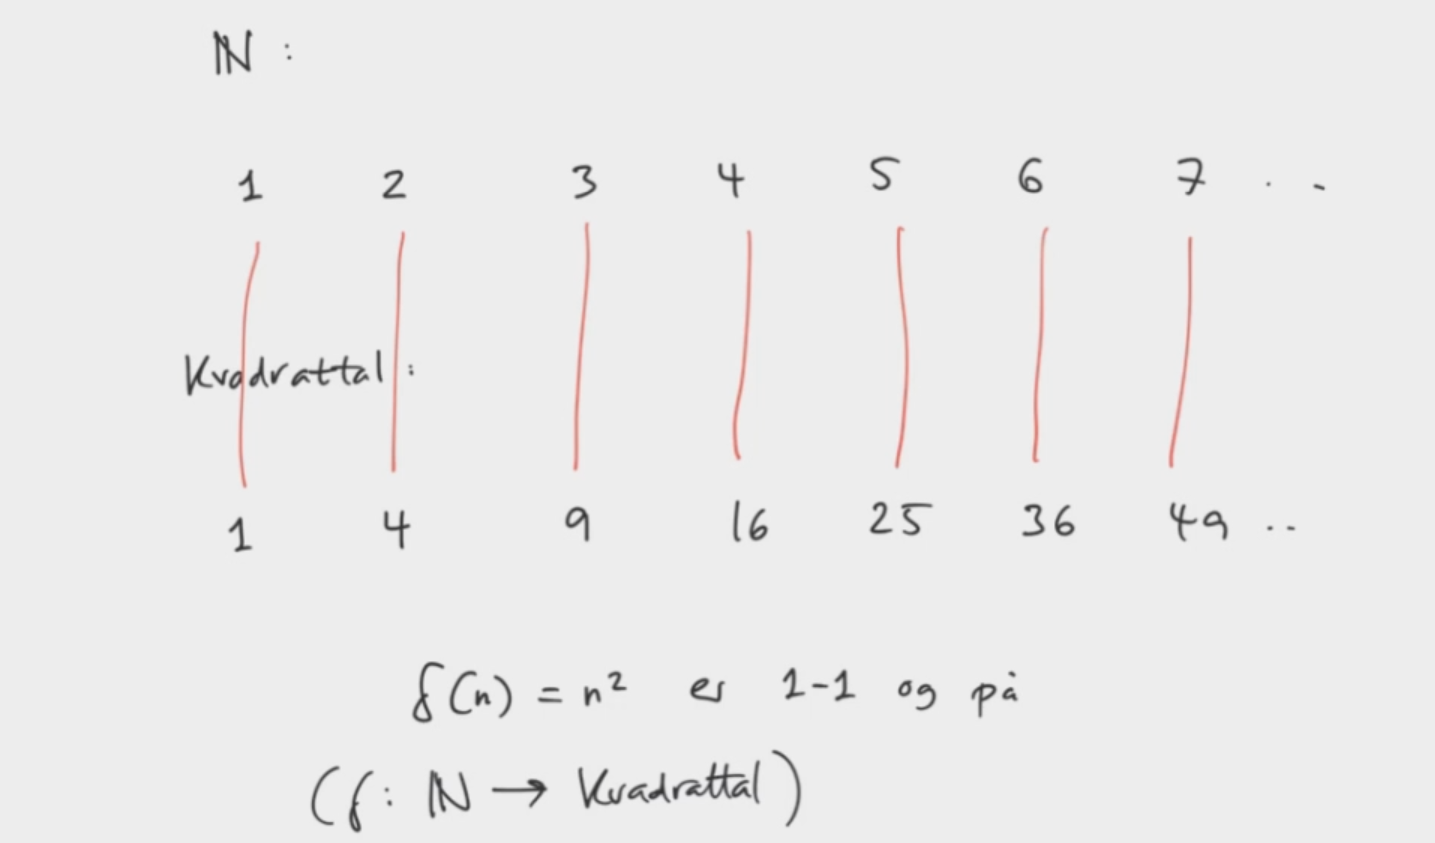 ℕ :
1 2 3 4 5 6 7 . .
Kvadrattal :
1 4 9 16 25 36 49 ..
f(n) = n² er 1-1 og på
(f: ℕ → Kvadrattal)